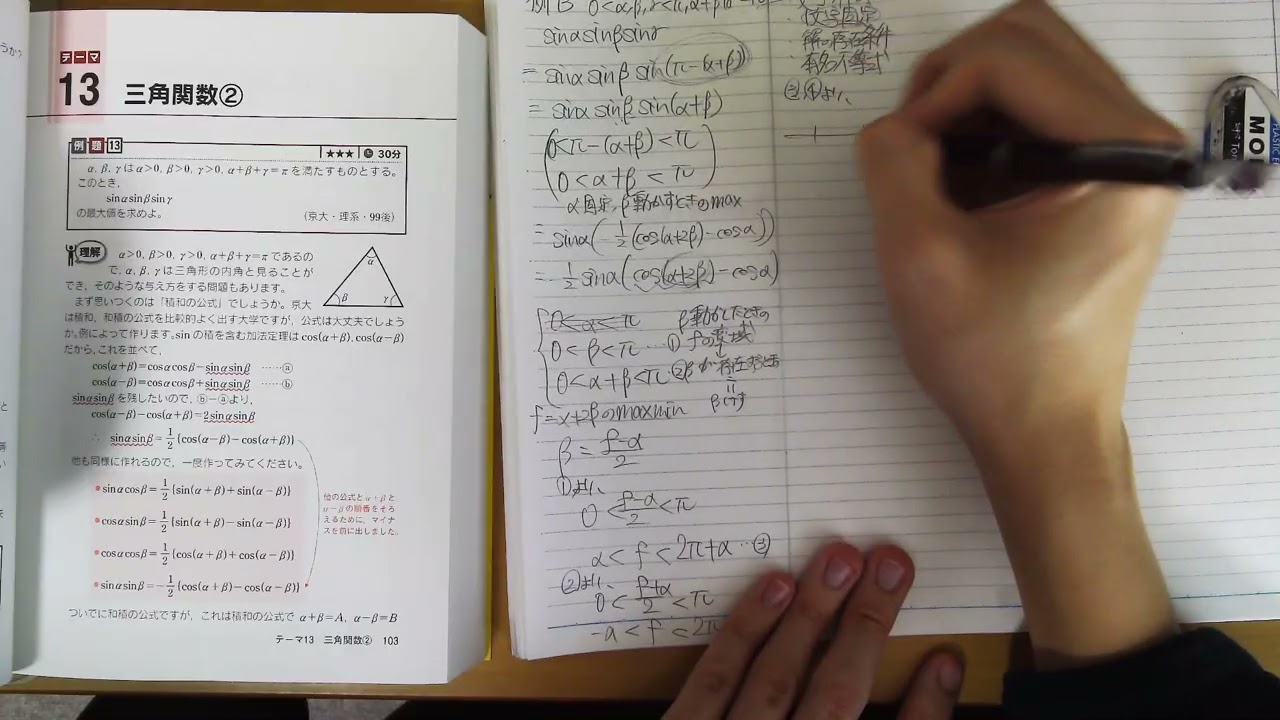 テーマ
13 三角関数②
例題13
★★★ 30分
α, β, γはα>0, β>0, γ>0, α+β+γ=πを満たすものとする。
このとき,
sinαsinβsinγ
の最大値を求めよ。 (京大・理系・99後)
理解 α>0, β>0, γ>0, α+β+γ=πであるの
で, α, β, γは三角形の内角と見ることが
でき, そのような与え方をする問題もあります。
まず思いつくのは「積和の公式」でしょうか。京大
は積和, 和積の公式を比較的よく出す大学ですが, 公式は大丈夫でしょう
か。例によって作ります。sinの積を含む加法定理はcos(α+β), cos(α−β)
だから, これを並べて,
cos(α+β)=cosαcosβ−sinαsinβ ……ⓐ
cos(α−β)=cosαcosβ+sinαsinβ ……ⓑ
sinαsinβを残したいので, ⓑ−ⓐより,
cos(α−β)−cos(α+β)=2sinαsinβ
∴ sinαsinβ=1/2{cos(α−β)−cos(α+β)}
他も同様に作れるので, 一度作ってみてください。
•sinαcosβ=1/2{sin(α+β)+sin(α−β)}
•cosαsinβ=1/2{sin(α+β)−sin(α−β)}
•cosαcosβ=1/2{cos(α+β)+cos(α−β)}
•sinαsinβ=−1/2{cos(α+β)−cos(α−β)}
他の公式とα+βと
α−βの順番をそろ
えるために, マイナ
スを前に出しました。
ついでに和積の公式ですが, これは積和の公式でα+β=A, α−β=B
テーマ13 三角関数② 103
α
β
γ
sinαsinβsinγ
=sinαsinβsin(π−(α+β))
=sinαsinβsin(α+β)
0<π−(α+β)<π
0<α+β<π
α固定, β動かすときのmax
=sinα(−1/2(cos(α+2β)−cosα))
=−1/2sinα(cos(α+2β)−cosα)
0<α<π
0<β<π…①
0<α+β<π…②
f=α+2βのmaxmin
β=f−α/2
①より、
0<f−α/2<π
α<f<2π+α…③
②より、
0<f+α/2<π
−α<f<2π
文字固定
解の存在条件
MONO